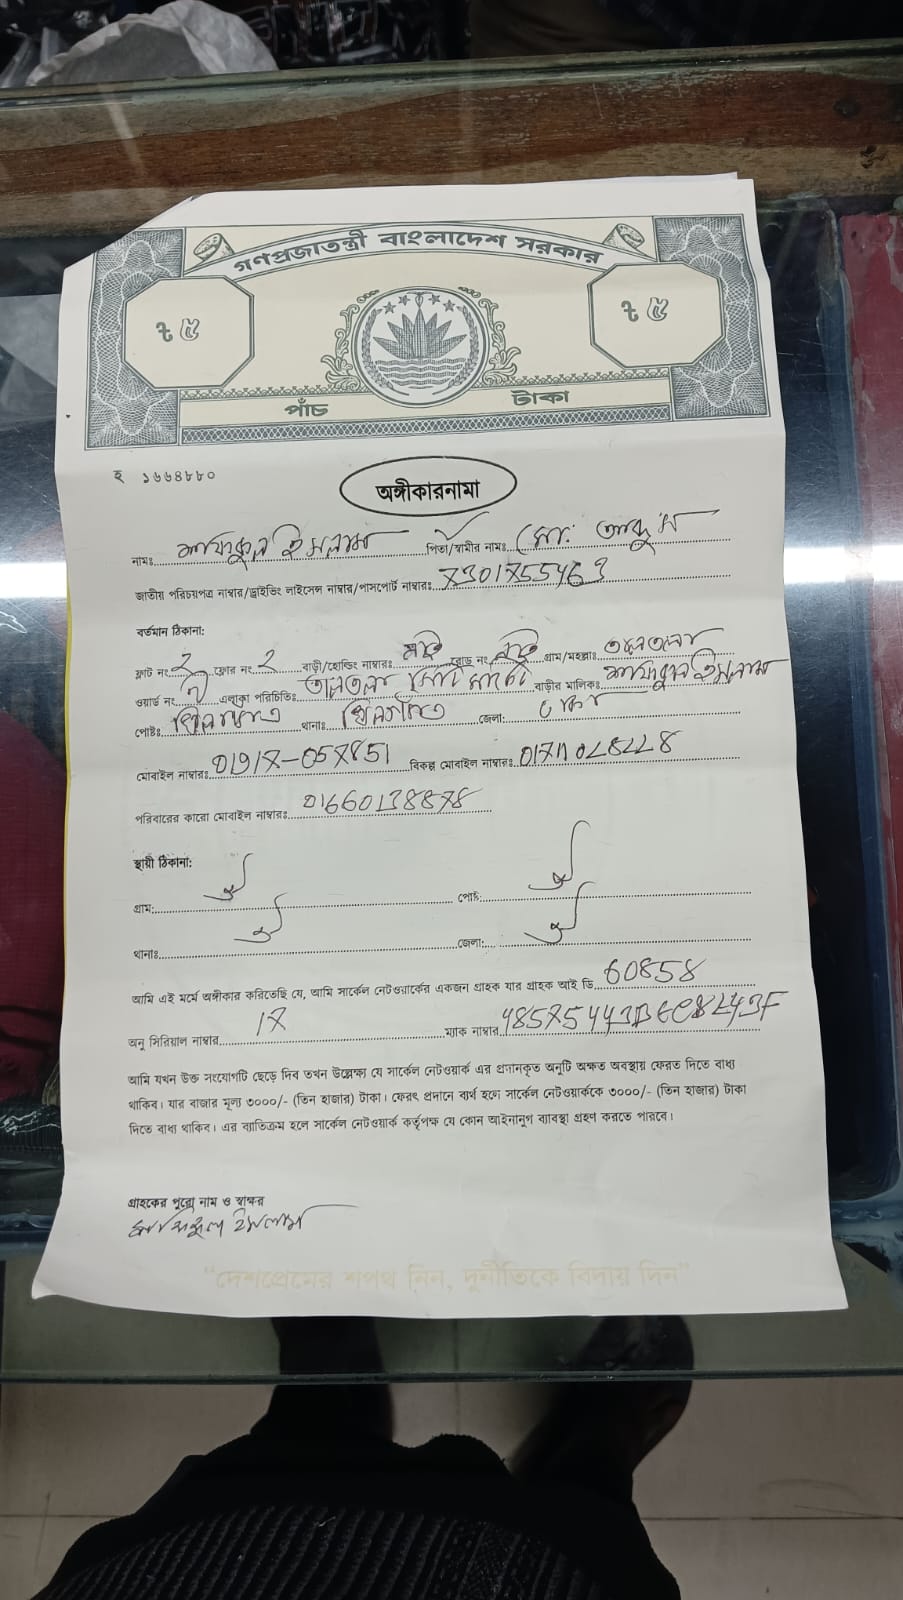 গণপ্রজাতন্ত্রী বাংলাদেশ সরকার
৳ ৫
৳ ৫
পাঁচ টাকা
হ ১৬৬৪৮৮০
অঙ্গীকারনামা
নামঃ ইসলাম পিতা/স্বামীর নামঃ মো:
জাতীয় পরিচয়পত্র নাম্বার/ড্রাইভিং লাইসেন্স নাম্বার/পাসপোর্ট নাম্বারঃ
বর্তমান ঠিকানা:
ফ্লাট নং 2 ফ্লোর নং 2 বাড়ী/হোল্ডিং নাম্বারঃ রোড নং গ্রাম/মহল্লাঃ তালতলা
ওয়ার্ড নং এলাকা পরিচিতিঃ তালতলা বাড়ীর মালিকঃ ইসলাম
পোষ্টঃ খিলক্ষেত থানাঃ খিলক্ষেত জেলা: ঢাকা
মোবাইল নাম্বারঃ বিকল্প মোবাইল নাম্বারঃ
পরিবারের কারো মোবাইল নাম্বারঃ
স্থায়ী ঠিকানা:
গ্রাম: ঐ পোষ্ট: ঐ
থানাঃ ঐ জেলা: ঐ
আমি এই মর্মে অঙ্গীকার করিতেছি যে, আমি সার্কেল নেটওয়ার্কের একজন গ্রাহক যার গ্রাহক আই ডি 60858
অনু সিরিয়াল নাম্বার ম্যাক নাম্বার
আমি যখন উক্ত সংযোগটি ছেড়ে দিব তখন উল্লেক্ষ্য যে সার্কেল নেটওয়ার্ক এর প্রদানকৃত অনুটি অক্ষত অবস্থায় ফেরত দিতে বাধ্য
থাকিব। যার বাজার মূল্য ৩০০০/- (তিন হাজার) টাকা। ফেরৎ প্রদানে ব্যর্থ হলে সার্কেল নেটওয়ার্ককে ৩০০০/- (তিন হাজার) টাকা
দিতে বাধ্য থাকিব। এর ব্যাতিক্রম হলে সার্কেল নেটওয়ার্ক কর্তৃপক্ষ যে কোন আইনানুগ ব্যাবস্থা গ্রহণ করতে পারবে।
গ্রাহকের পুরো নাম ও স্বাক্ষর
ইসলাম
"দেশপ্রেমের শপথ নিন, দুর্নীতিকে বিদায় দিন"